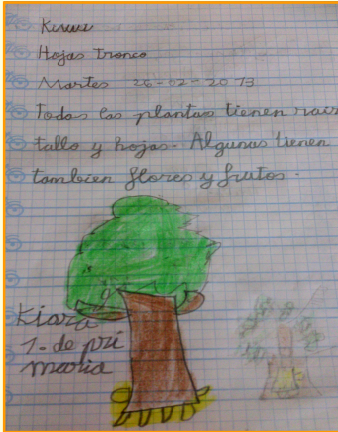 Hojas Tronco
Martes 26-02-2013
Todas las plantas tienen raiz
tallo y hojas. Algunas tienen
tambien flores y frutos.
Kiara
1. de pri
maria